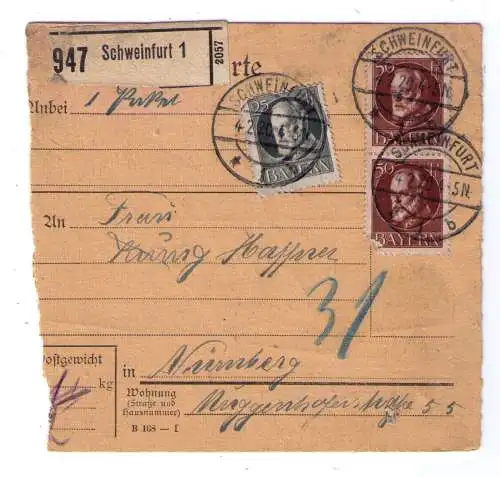 947 Schweinfurt 1 2057
rte
Anbei 1 Paket
SCHWEINFURT
4.2.20
25
BAYERN
SCHWEINFURT
50
BAYERN
SCHWEINFURT
5N.
b
50
BAYERN
An Frau
Haffner
31
Postgewicht
kg
in Nürnberg
Wohnung
(Straße und
Hausnummer)
Muggenhoferstraße 55
B 168 — I